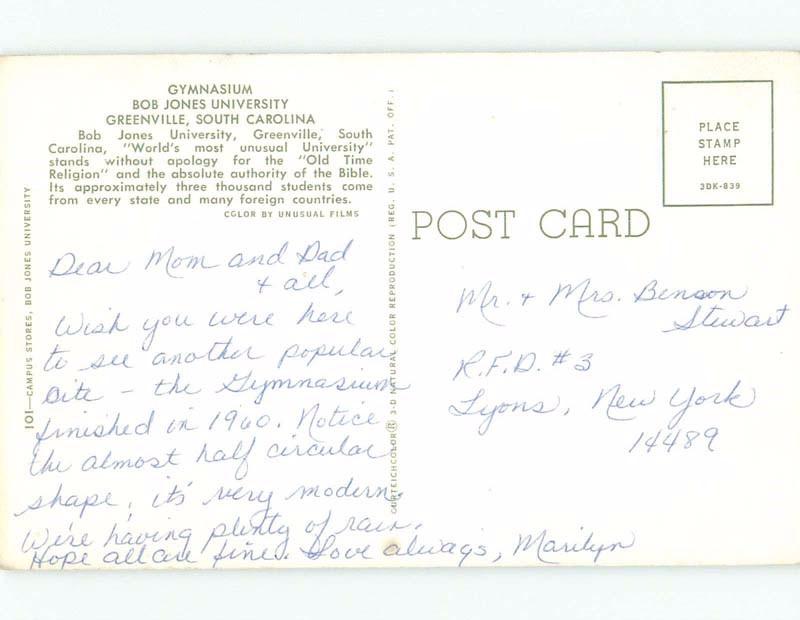 GYMNASIUM
BOB JONES UNIVERSITY
GREENVILLE, SOUTH CAROLINA
Bob Jones University, Greenville, South
Carolina, "World's most unusual University"
stands without apology for the "Old Time
Religion" and the absolute authority of the Bible.
Its approximately three thousand students come
from every state and many foreign countries.
COLOR BY UNUSUAL FILMS
101—CAMPUS STORES, BOB JONES UNIVERSITY
Dear Mom and Dad
+ all,
Wish you were here
to see another popular
site – the Gymnasium
finished in 1960. Notice
the almost half circular
shape, it's very modern.
We're having plenty of rain.
Hope all are fine. Love always, Marilyn
CURTEICHCOLOR® 3-D NATURAL COLOR REPRODUCTION (REG. U. S. A. PAT. OFF.)
POST CARD
PLACE
STAMP
HERE
3DK-839
Mr. + Mrs. Benson
Stewart
R.F.D. #3
Lyons, New York
14489